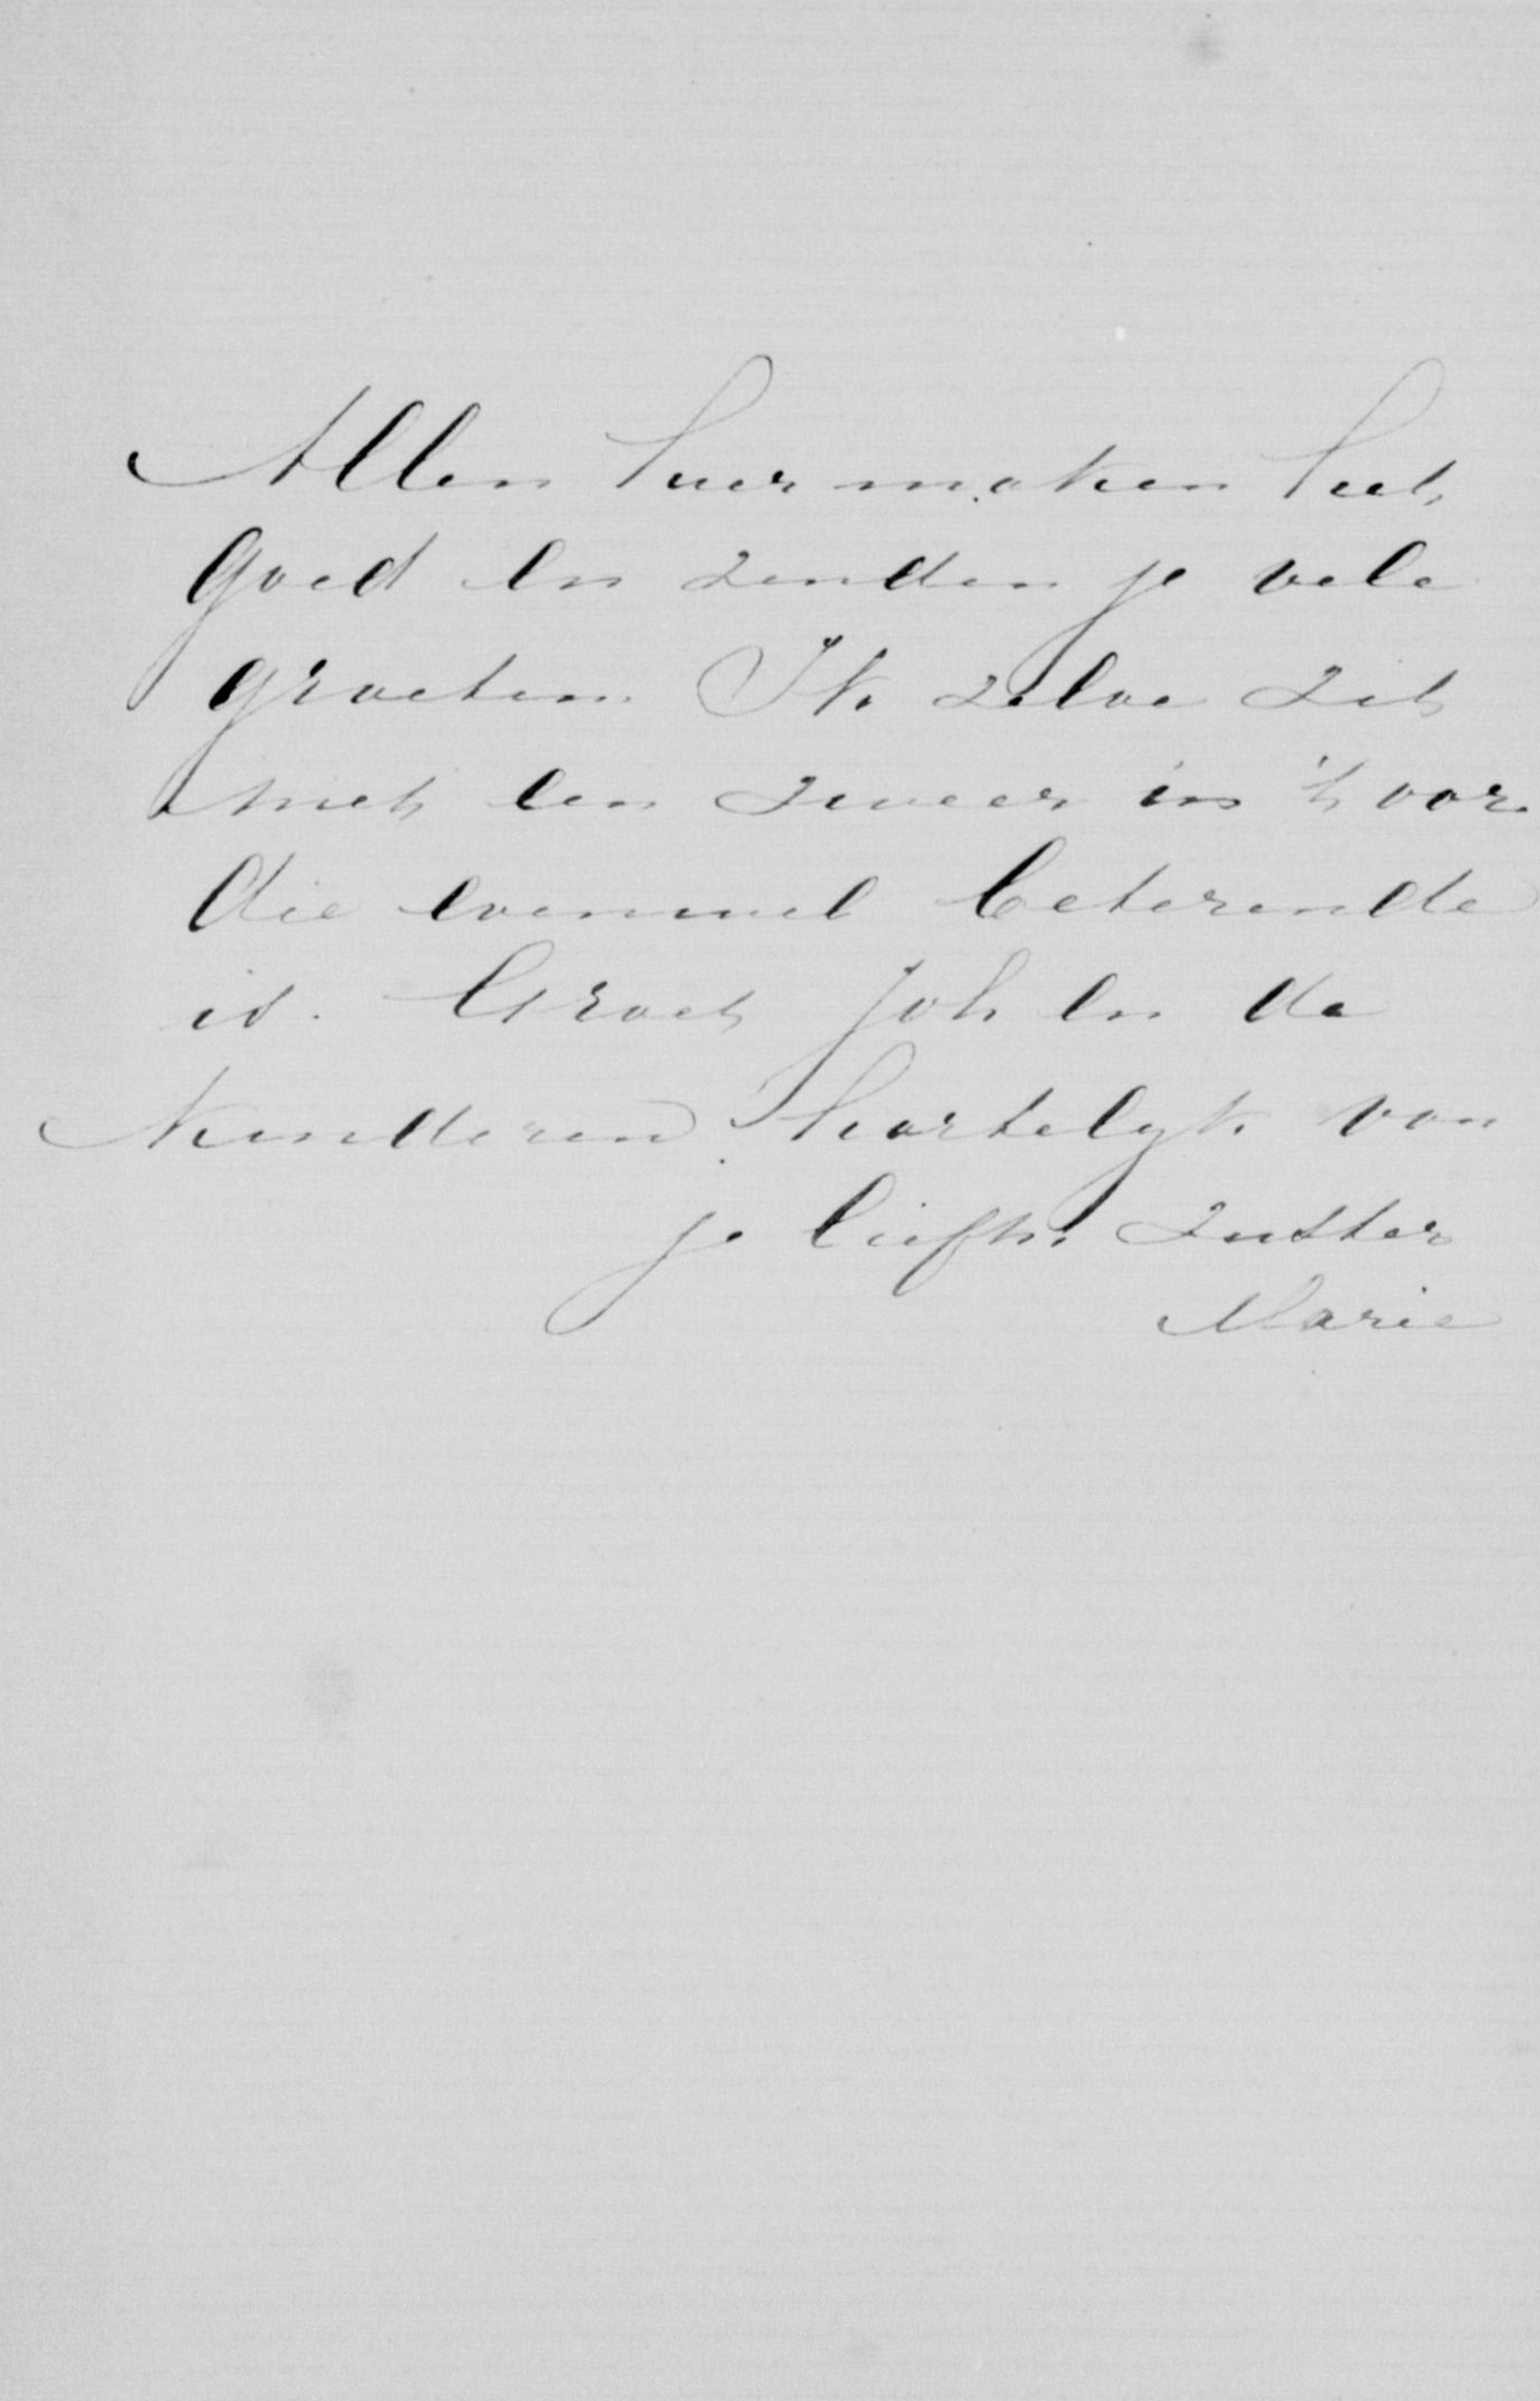 Allen hier maken het
goed en zenden je vele
groeten. Ik zelve zit
met een zweer in 't oor.
die evenwel beterende
is. Groet Joh en de
kinderen hartelyk van
je liefh. zuster
Marie